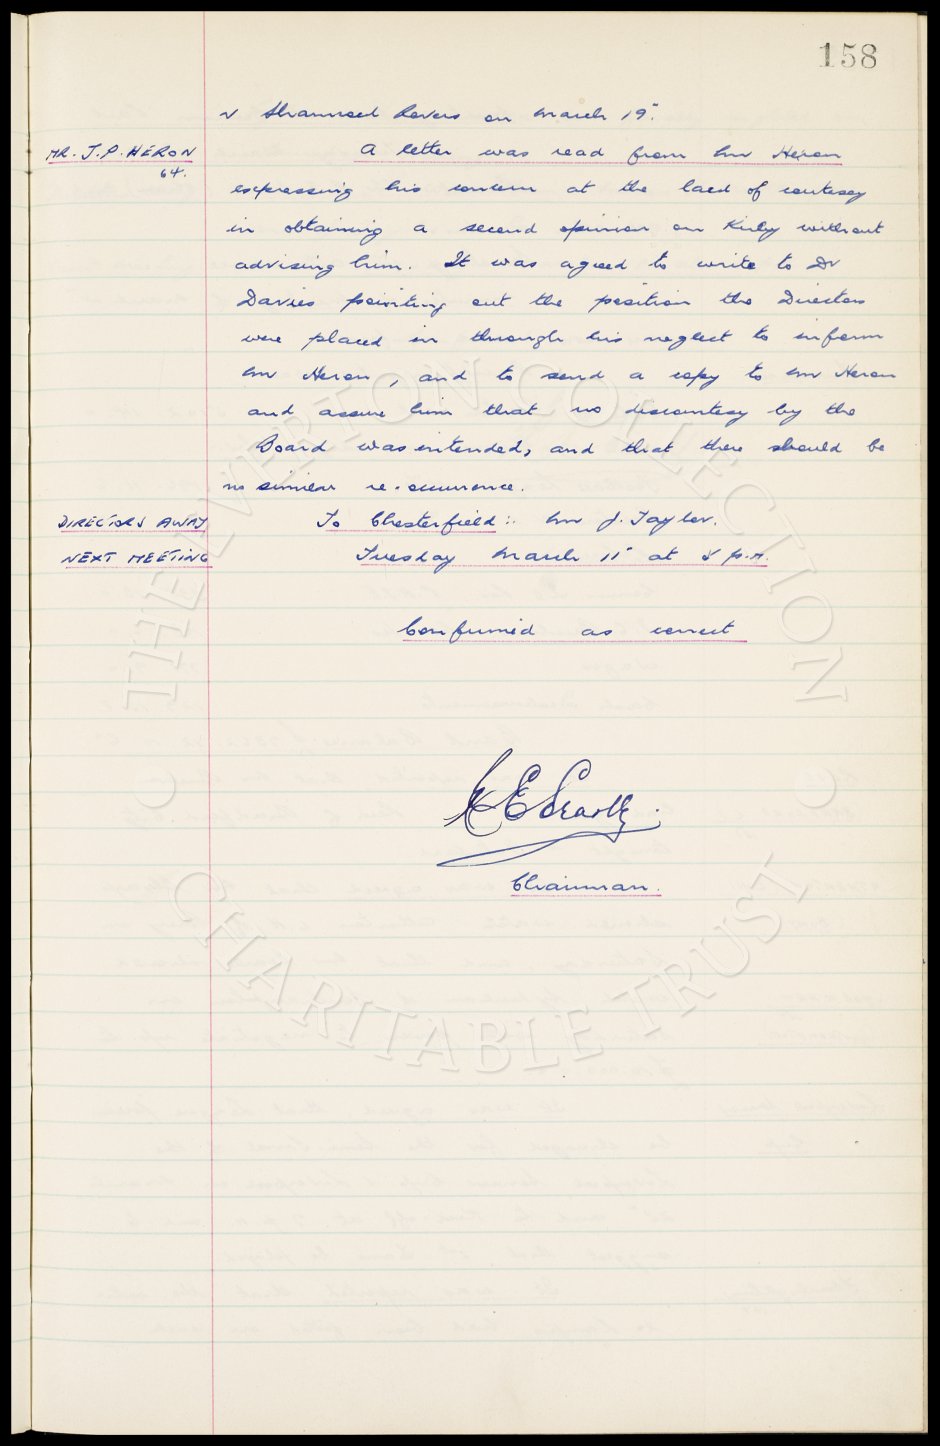 158
v Shamrock Rovers on March 19".
MR. J.P. HERON
64.
A letter was read from Mr Heron
expressing his concern at the lack of courtesy
in obtaining a second opinion on Kirby without
advising him. It was agreed to write to Dr
Davies pointing out the position the Directors
were placed in through his neglect to inform
Mr Heron, and to send a copy to Mr Heron
and assure him that no discourtesy by the
Board was intended, and that there should be
no similar re-occurrence.
DIRECTORS AWAY
To Chesterfield:: Mr J. Taylor.
NEXT MEETING
Tuesday March 11" at 8 p.m.
Confirmed as correct
Chairman.
© THE EVERTON COLLECTION ©
CHARITABLE TRUST